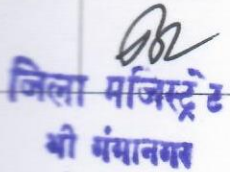 जिला मजिस्ट्रेट
श्री गंगानगर